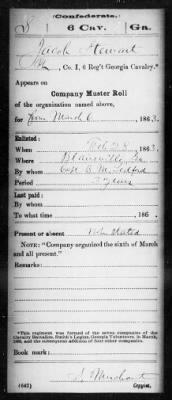 Confederate.
S 6 Cav. Ga.
Jacob Stewart
, Co. I, 6 Reg't Georgia Cavalry.*
Appears on
Company Muster Roll
of the organization named above,
for from March 6, 1863.
Enlisted:
When Feb 28, 1863.
Where Blairsville, Ga
By whom Capt. B. M. Ledford
Period 3 years
Last paid:
By whom
To what time , 186 .
Present or absent Not stated
NOTE: "Company organized the sixth of March
and all present."
Remarks:
*This regiment was formed of the seven companies of the
Cavalry Battalion, Smith's Legion, Georgia Volunteers, in March,
1863, and the subsequent addition of four other companies.
Book mark:
(642) Copyist.